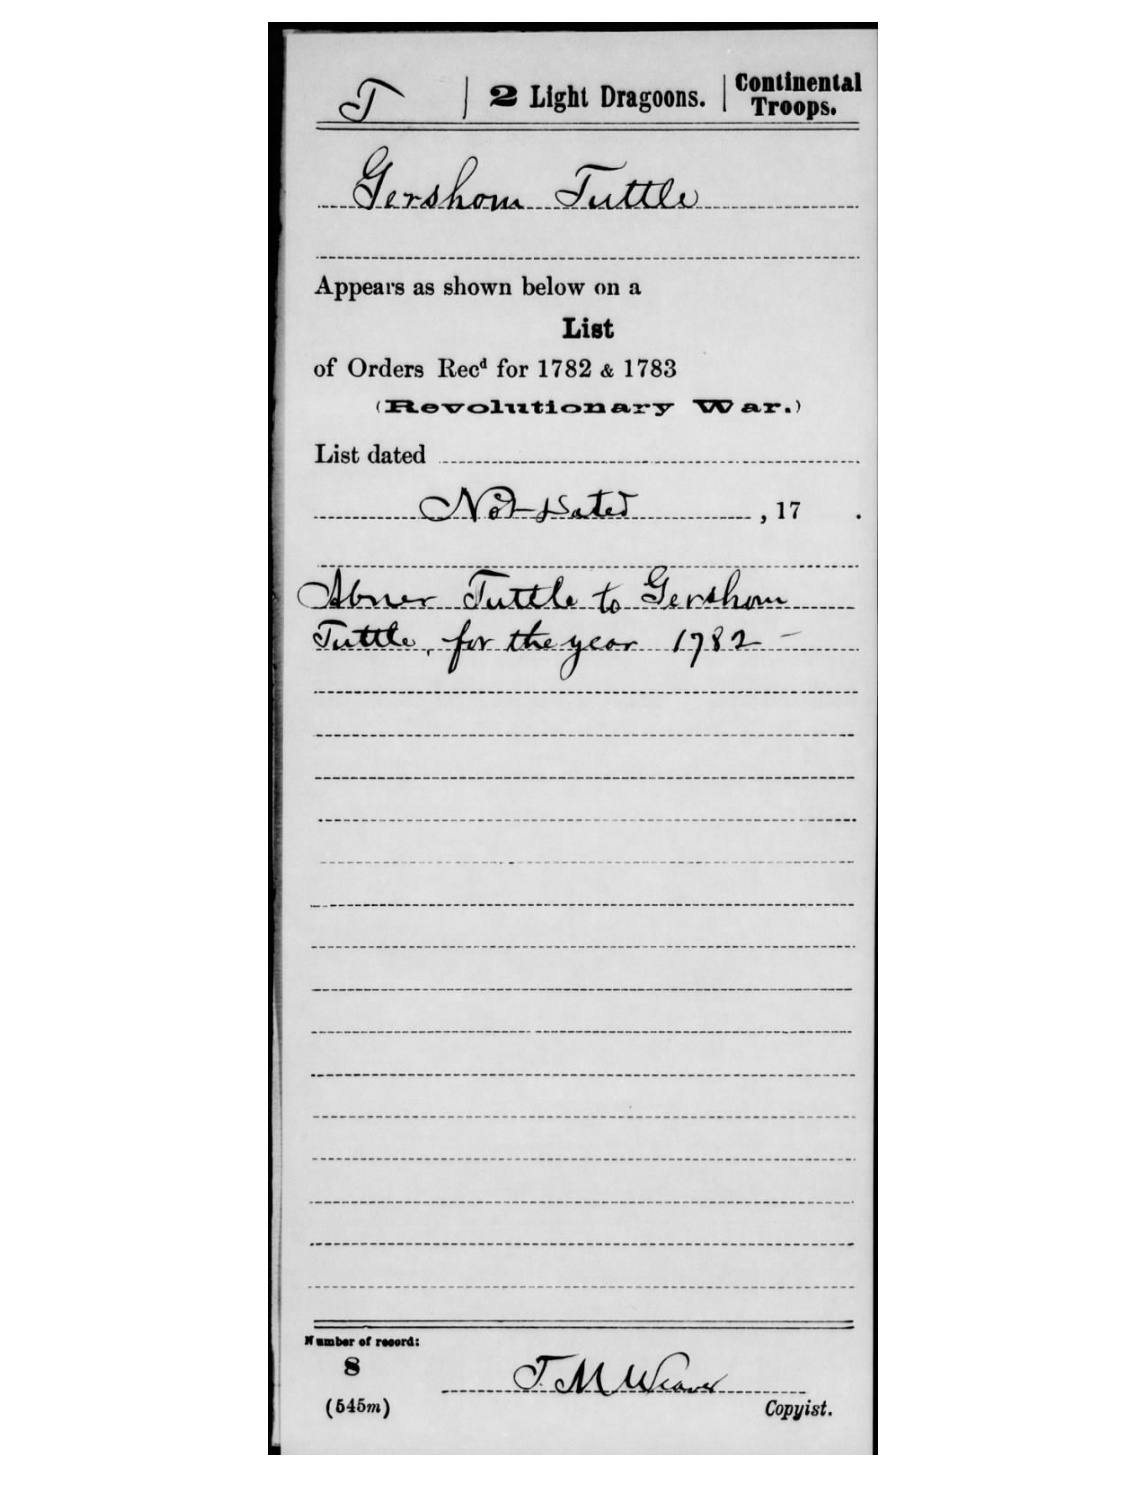 T | 2 Light Dragoons. | Continental Troops.
Gershom Tuttle
Appears as shown below on a
List
of Orders Recᵈ for 1782 & 1783
(Revolutionary War.)
List dated
Not Dated , 17 .
Abner Tuttle to Gershom
Tuttle, for the year 1782 –
Number of record:
8
T. M. Weaver
(545m)
Copyist.